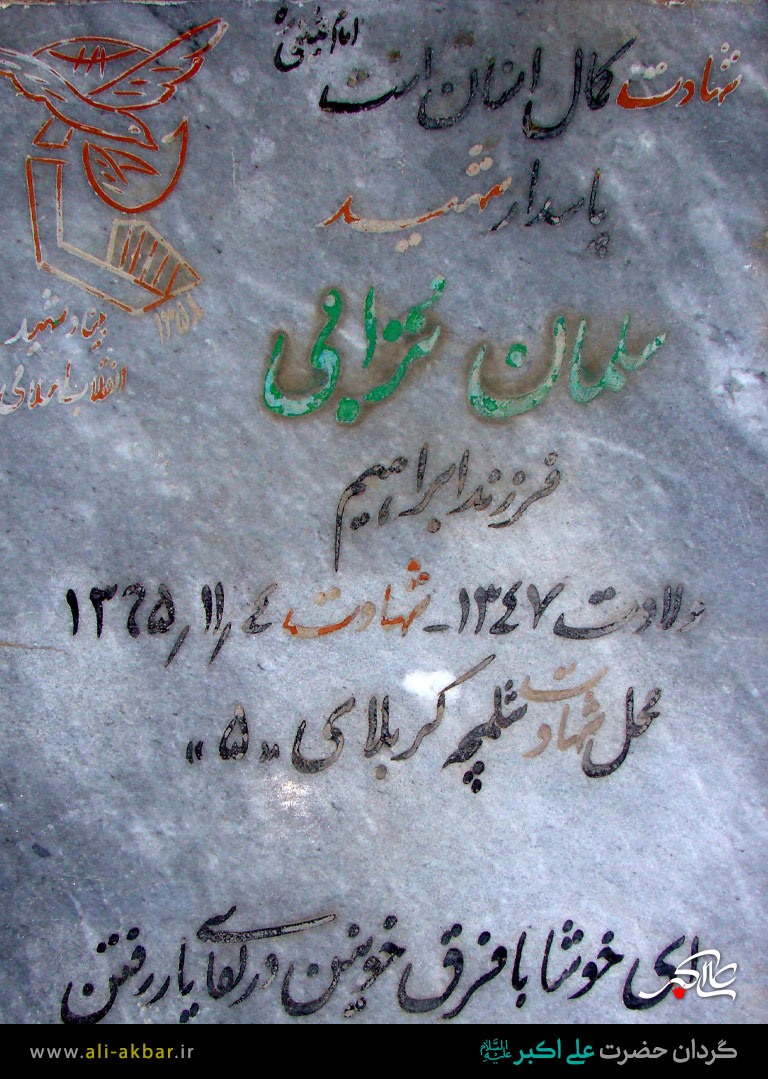 شهادت کمال انسان است
امام خمینی ره
پاسدار شهید
سلمان ترابی
فرزند ابراهیم
ولادت ۱۳۴۷ - شهادت ۴ / ۱۱ / ۱۳۶۵
محل شهادت شلمچه کربلای «۵»
ای خوشا با فرق خونین در لقای یار رفتن
۱۳۵۸
بنیاد شهید
انقلاب اسلامی
علی اکبر
گردان حضرت علی اکبر علیه السلام
www.ali-akbar.ir